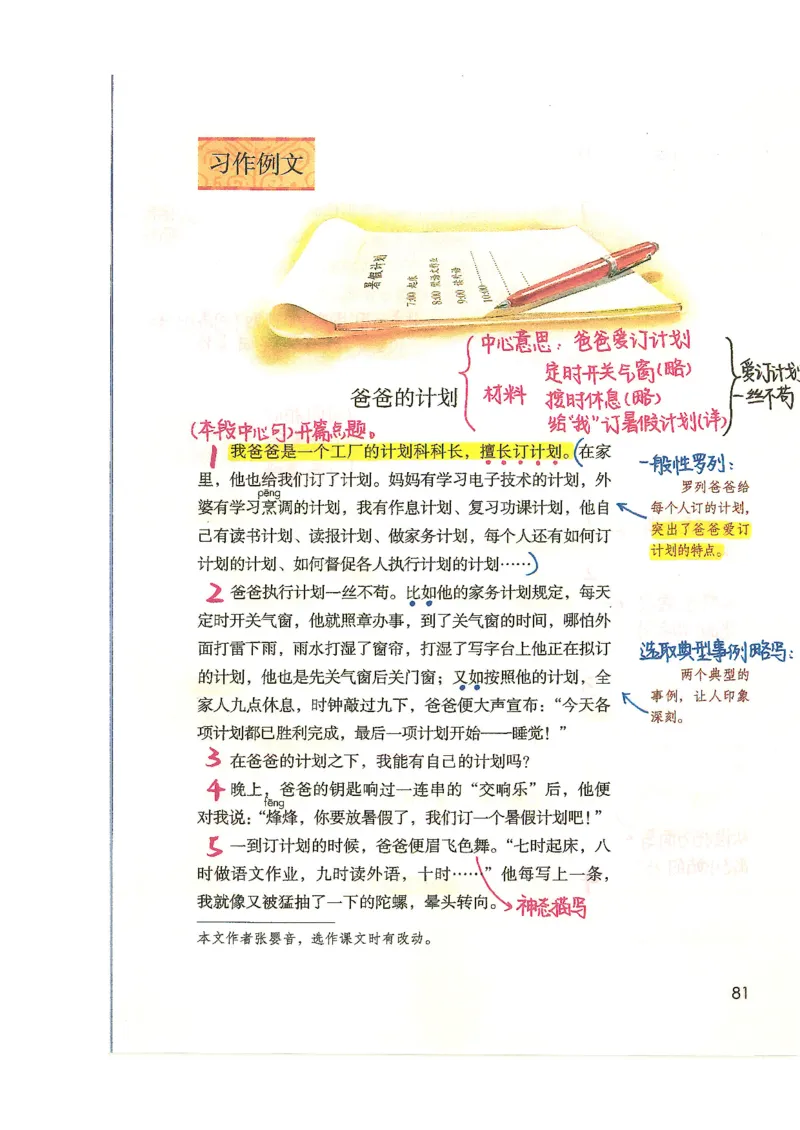 习作例文
暑假计划
7:00 起床
8:00 做语文作业
9:00 读外语
10:00
中心意思：爸爸爱订计划
定时开关气窗(略)
材料
按时休息(略)
给“我”订暑假计划(详)
爱订计划
一丝不苟
爸爸的计划
(本段中心句)开篇点题。
1 我爸爸是一个工厂的计划科科长，擅长订计划。(在家
里，他也给我们订了计划。妈妈有学习电子技术的计划，外
pēng
婆有学习烹调的计划，我有作息计划、复习功课计划，他自
己有读书计划、读报计划、做家务计划，每个人还有如何订
计划的计划、如何督促各人执行计划的计划……)
一般性罗列：
罗列爸爸给
每个人订的计划，
突出了爸爸爱订
计划的特点。
2 爸爸执行计划一丝不苟。比如他的家务计划规定，每天
定时开关气窗，他就照章办事，到了关气窗的时间，哪怕外
面打雷下雨，雨水打湿了窗帘，打湿了写字台上他正在拟订
的计划，他也是先关气窗后关门窗；又如按照他的计划，全
家人九点休息，时钟敲过九下，爸爸便大声宣布：“今天各
项计划都已胜利完成，最后一项计划开始——睡觉！”
选取典型事例略写：
两个典型的
事例，让人印象
深刻。
3 在爸爸的计划之下，我能有自己的计划吗？
4 晚上，爸爸的钥匙响过一连串的“交响乐”后，他便
fēng
对我说：“烽烽，你要放暑假了，我们订一个暑假计划吧！”
5 一到订计划的时候，爸爸便眉飞色舞。“七时起床，八
时做语文作业，九时读外语，十时……”他每写上一条，
我就像又被猛抽了一下的陀螺，晕头转向。
神态描写
本文作者张婴音，选作课文时有改动。
81